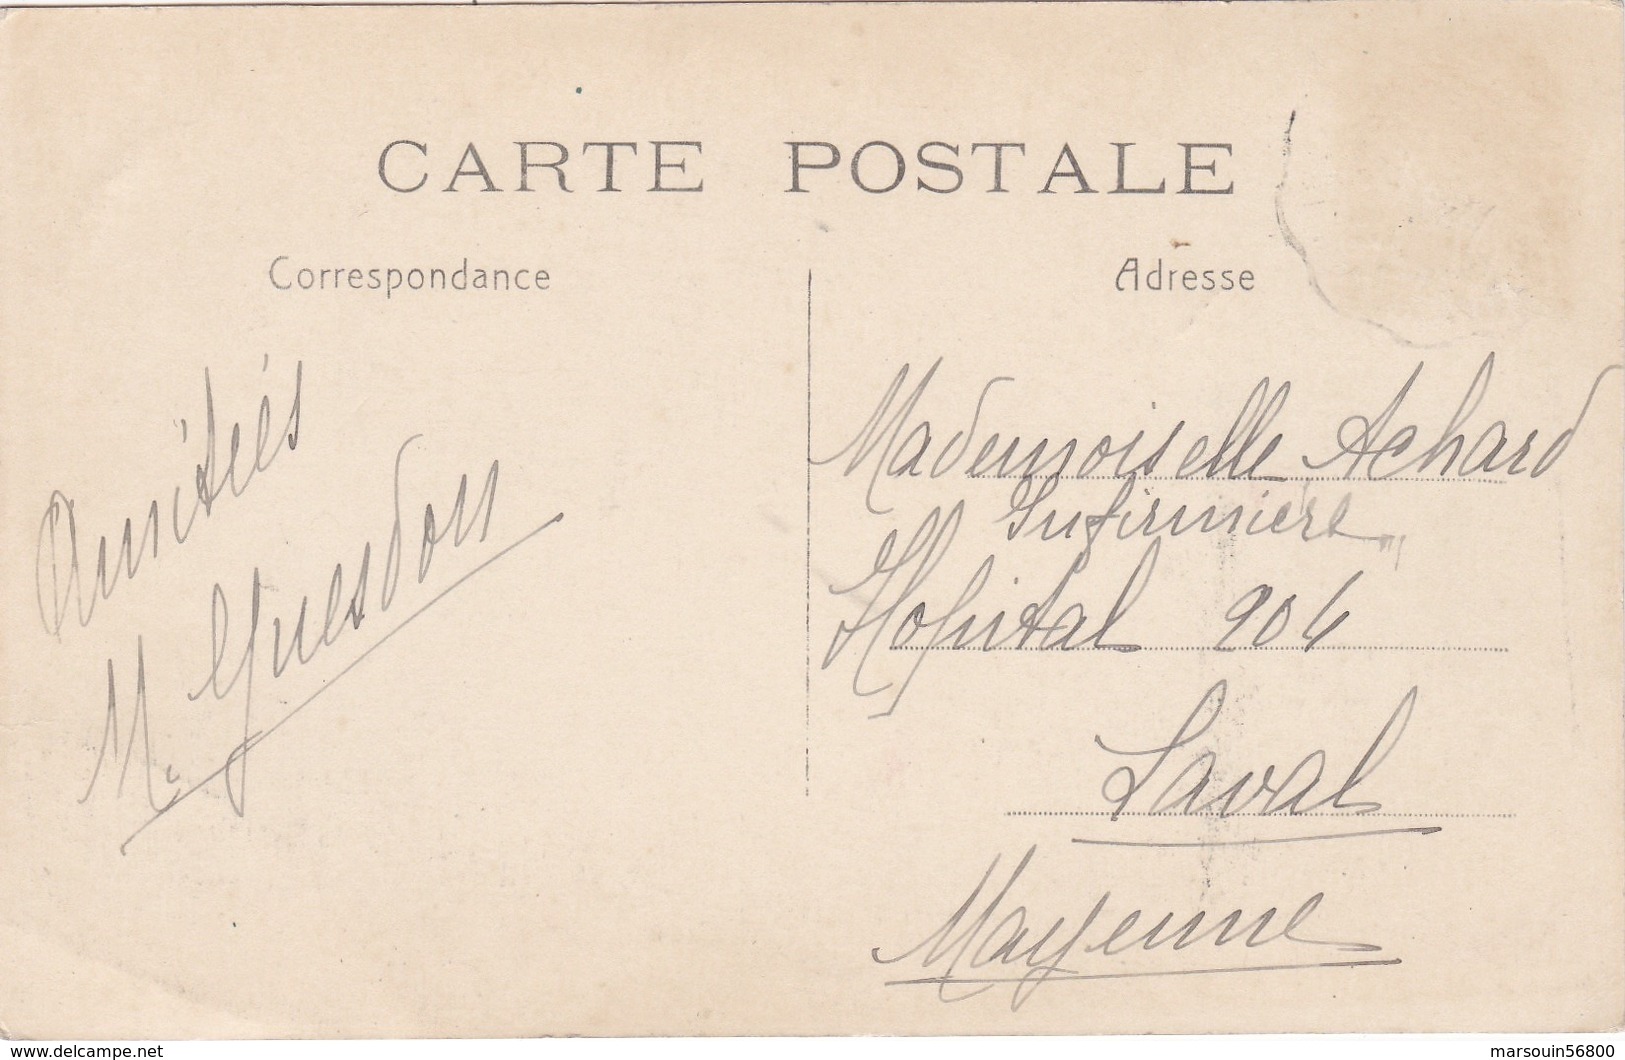 CARTE POSTALE
Correspondance
Adresse
Amitiés
M. Guesdon
Mademoiselle Achard
Infirmière
Hopital 904
Laval
Mayenne
www.delcampe.net
marsouin56800